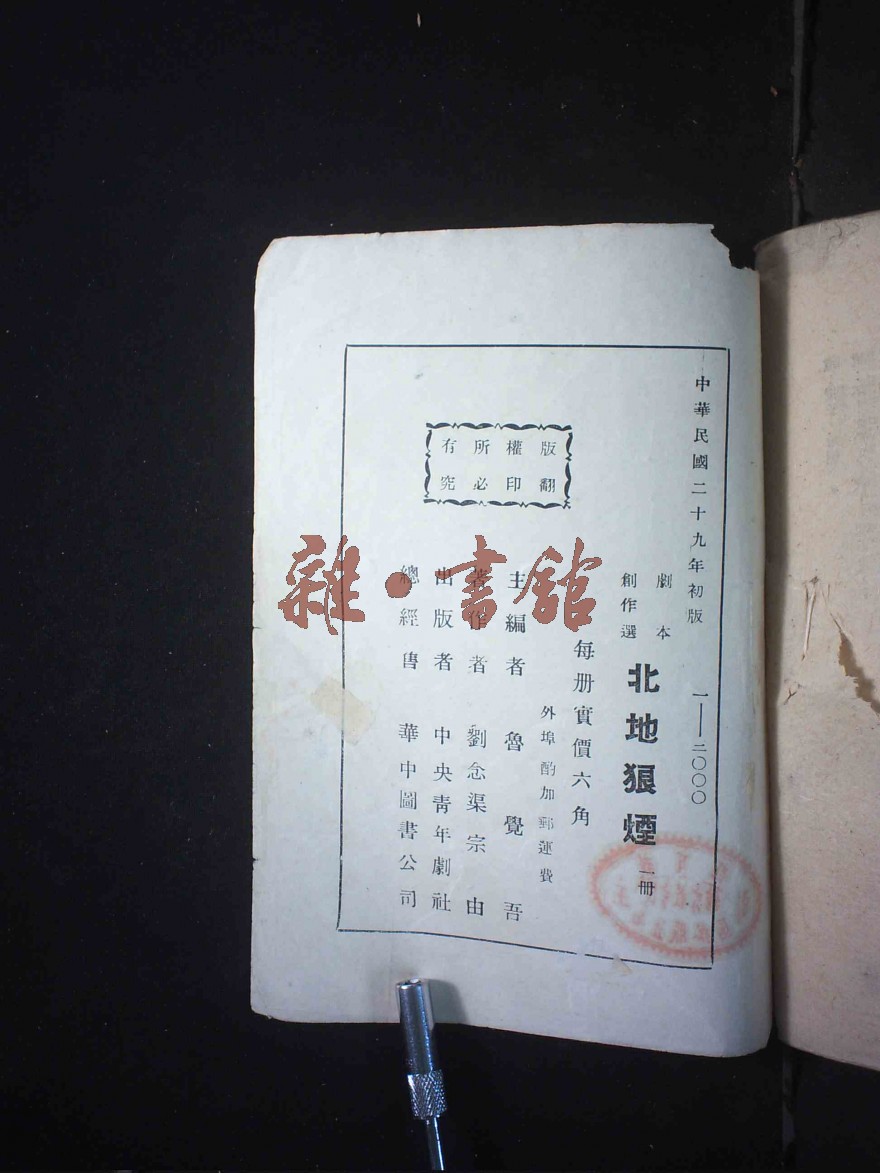 中華民國二十九年初版 一——二〇〇〇
劇本
創作選
北地狼煙 一册
每册實價六角
外埠酌加郵運費
主編者 魯覺吾
著作者 劉念渠 宗由
出版者 中央靑年劇社
總經售 華中圖書公司
版權所有
翻印必究
雜·書館